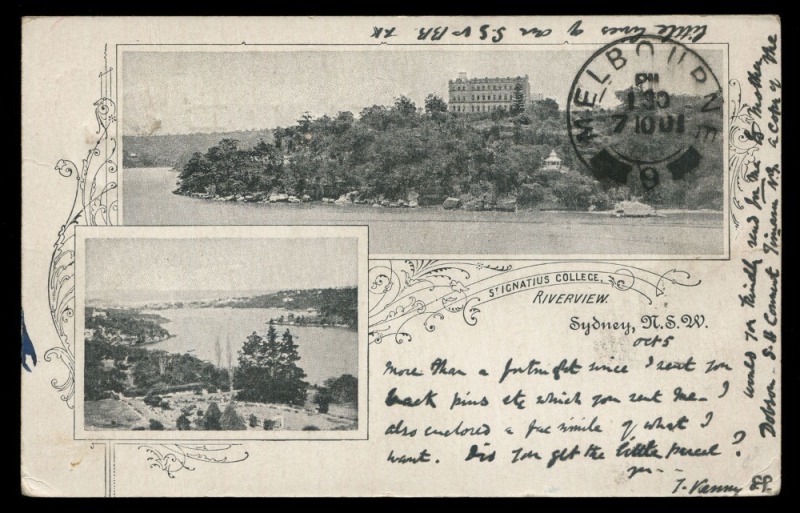 little lines of our S.S v BR.
MELBOURNE
PM
1 30
7 10 01
9
ST IGNATIUS COLLEGE,
RIVERVIEW.
Sydney, N.S.W.
Oct 5
More than a fortnight since I sent you
back pins etc which you sent me. I
also enclosed a fac simile of what I
want. Did you get the little parcel ?
T.
would you kindly send for me to Mother
Dobson. S.H Convent a copy of the